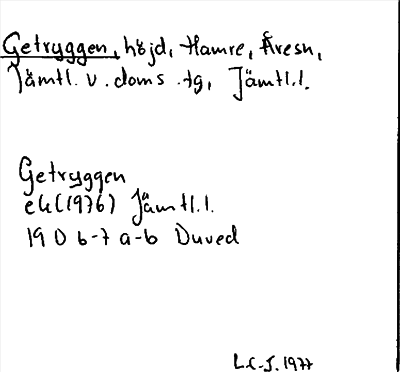 Getryggen, höjd, Hamre, Åresn,
Jämtl. v. doms.tg, Jämtl.l.
Getryggen
ek(1976) Jämtl.l.
19 D 6-7 a-b Duved
L.C-J. 1977